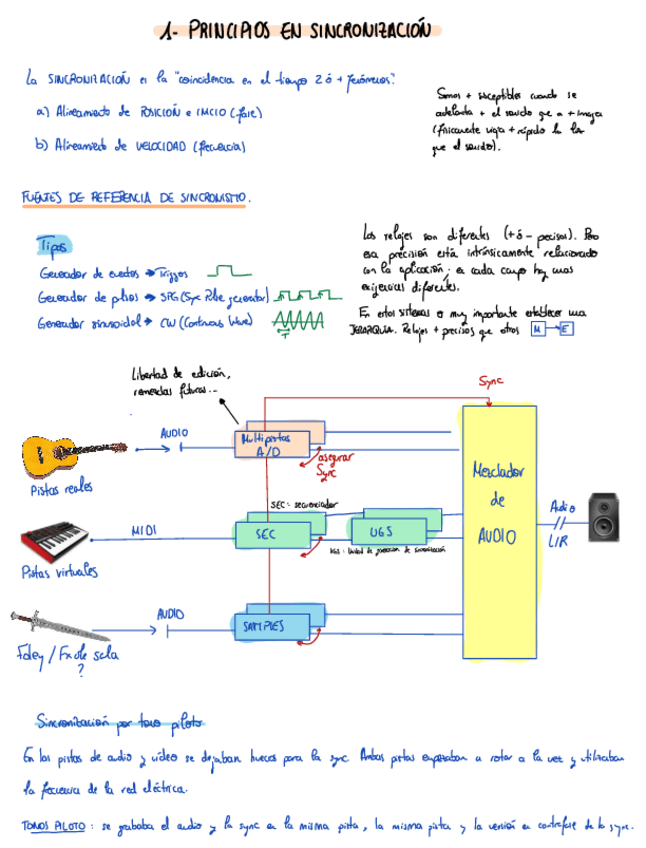 1- PRINCIPIOS EN SINCRONIZACIÓN
La SINCRONIZACIÓN es la "coincidencia en el tiempo 2 ó + fenómenos".
a) Alineamiento de POSICIÓN e INICIO (fase)
b) Alineamiento de VELOCIDAD (frecuencia)
Somos + susceptibles cuando se
adelanta + el sonido que a + imagen
(físicamente viaja + rápido la luz
que el sonido).
FUENTES DE REFERENCIA DE SINCRONISMO.
Tipos
Generador de eventos → Triggers
Generador de pulsos → SPG (Sync Pulse generator)
Generador sinusoidal → CW (Continous Wave)
T
Los relojes son diferentes (+ ó - precisos). Pero
esa precisión está intrínsicamente relacionada
con la aplicación; en cada campo hay unas
exigencias diferentes.
En estos sistemas es muy importante establecer una
JERARQUÍA. Relojes + precisos que otros M → E
Libertad de edición,
remezclas futuras...
Sync
AUDIO
Multipistas
A/D
asegurar
Sync
Pistas reales
Mezclador
de
AUDIO
SEC: secuenciador
MIDI
SEC
UGS
Audio
L/R
UGS: Unidad de generación de sincronización
Pistas virtuales
AUDIO
SAMPLES
Foley / Fx de sala
?
Sincronización por tono piloto
En las pistas de audio y vídeo se dejaban huecos para la sync. Ambas pistas empezaban a rotar a la vez y utilizaban
la frecuencia de la red eléctrica.
TONOS PILOTO: se grababa el audio y la sync en la misma pista, la misma pista y la versión en contrafase de la sync.